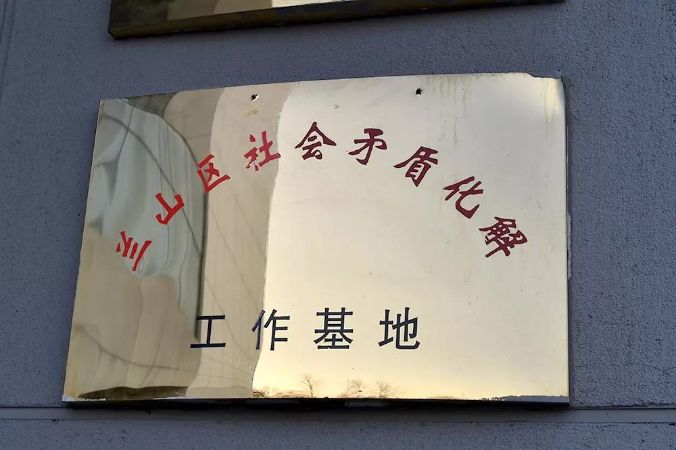 区社会矛盾化解
工作基地